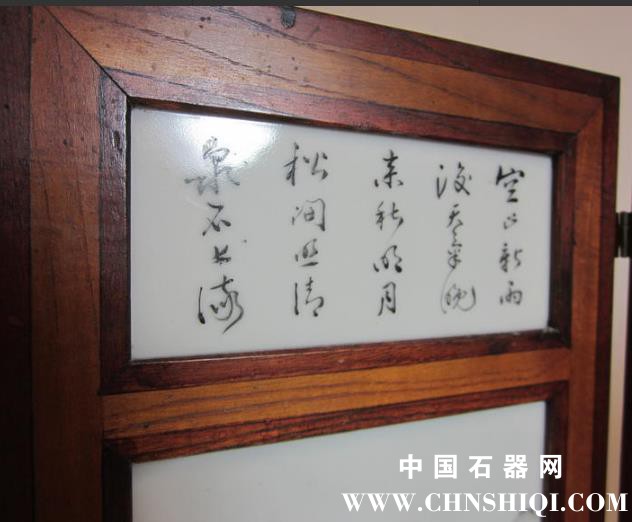 空山新雨
後天氣晚
来秋明月
松間照清
泉石上流
中国石器网
WWW.CHNSHIQI.COM